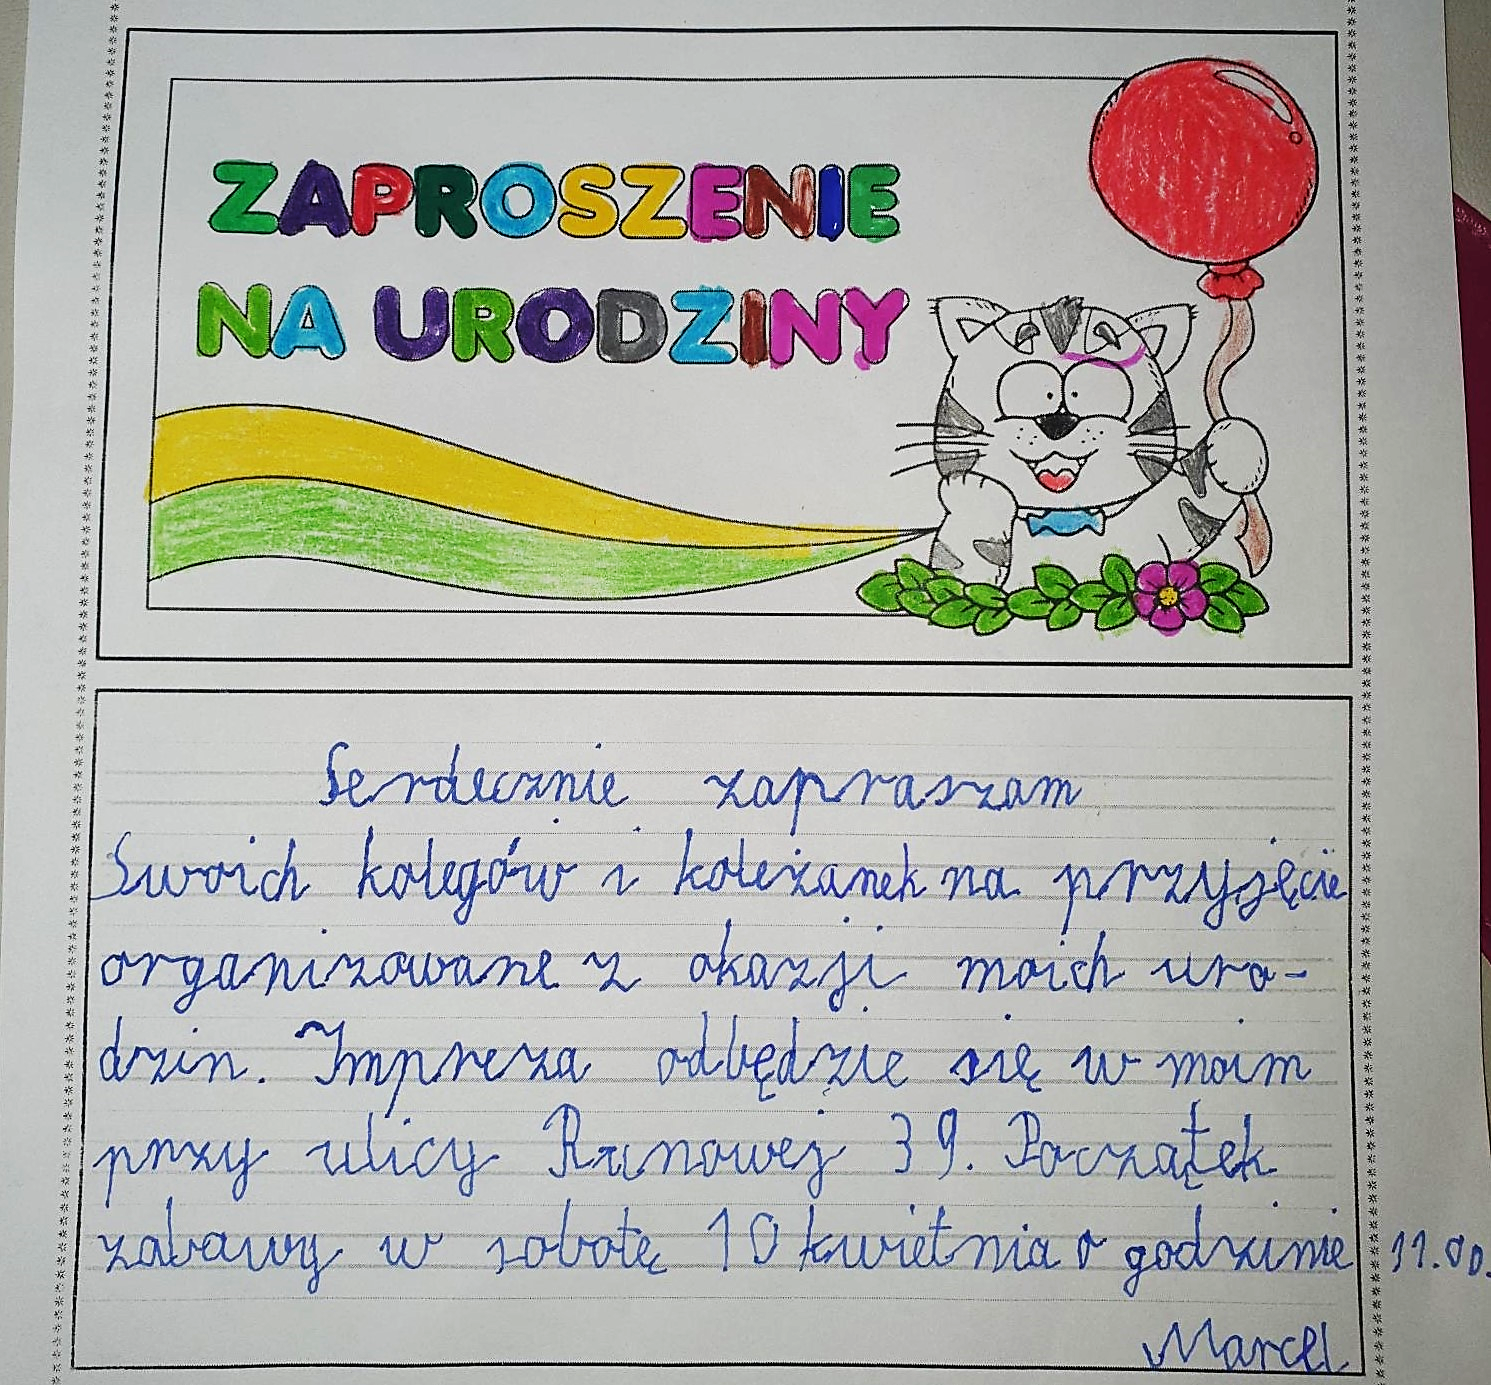 ZAPROSZENIE
NA URODZINY
Serdecznie zapraszam
Swoich kolegów i koleżanek na przyjęcie
organizowane z okazji moich uro-
dzin. Impreza odbędzie się w moim
przy ulicy 39. Początek
zabawy w sobotę 10 kwietnia o godzinie 11.00.
Marcel